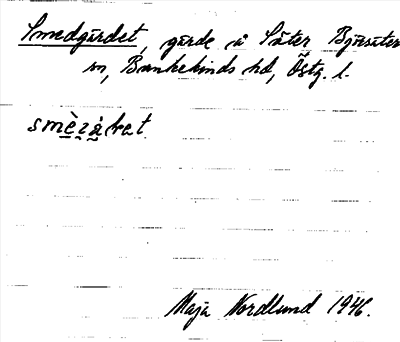 Smedgärdet, gärde å Säter Bjärsäter
sn, Bankekinds hd, Östg. l.
Maja Nordlund 1946.